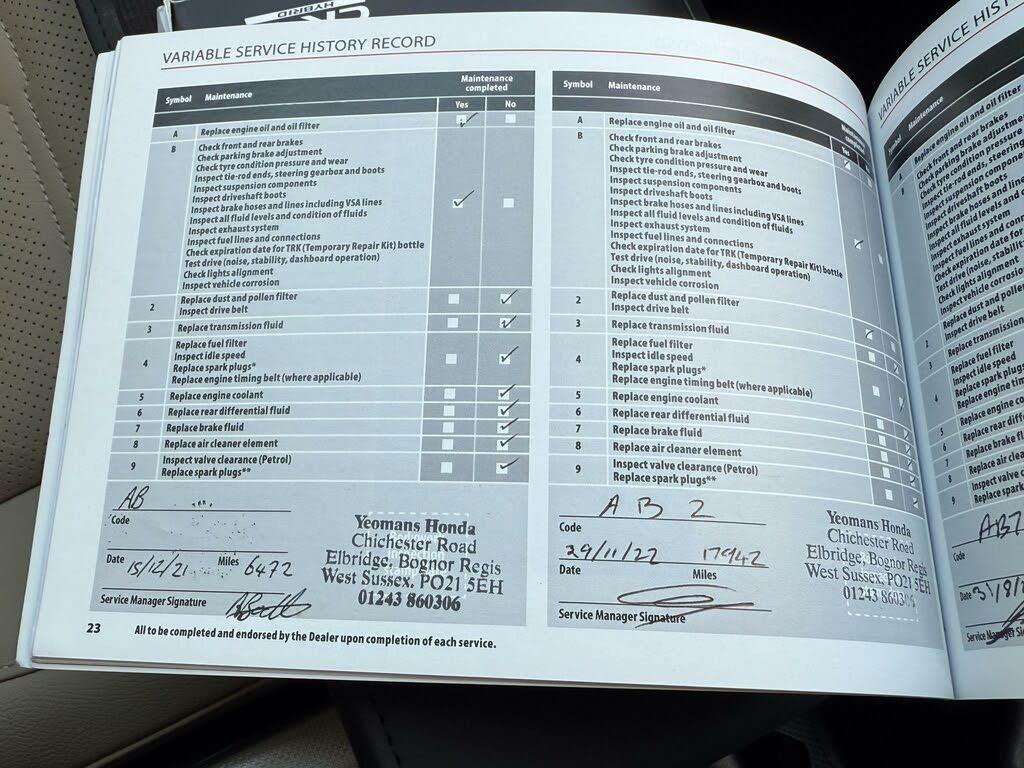 HYBRID
VARIABLE SERVICE HISTORY RECORD
Symbol Maintenance Maintenance completed
Yes No
A Replace engine oil and oil filter
B Check front and rear brakes
Check parking brake adjustment
Check tyre condition pressure and wear
Inspect tie-rod ends, steering gearbox and boots
Inspect suspension components
Inspect driveshaft boots
Inspect brake hoses and lines including VSA lines
Inspect all fluid levels and condition of fluids
Inspect exhaust system
Inspect fuel lines and connections
Check expiration date for TRK (Temporary Repair Kit) bottle
Test drive (noise, stability, dashboard operation)
Check lights alignment
Inspect vehicle corrosion
2 Replace dust and pollen filter
Inspect drive belt
3 Replace transmission fluid
4 Replace fuel filter
Inspect idle speed
Replace spark plugs*
Replace engine timing belt (where applicable)
5 Replace engine coolant
6 Replace rear differential fluid
7 Replace brake fluid
8 Replace air cleaner element
9 Inspect valve clearance (Petrol)
Replace spark plugs**
AB
Code
Date 15/12/21 Miles 6472
Service Manager Signature
Yeomans Honda
Chichester Road
Elbridge, Bognor Regis
West Sussex. PO21 5EH
01243 860306
23 All to be completed and endorsed by the Dealer upon completion of each service.
Symbol Maintenance
Yes
A Replace engine oil and oil filter
B Check front and rear brakes
Check parking brake adjustment
Check tyre condition pressure and wear
Inspect tie-rod ends, steering gearbox and boots
Inspect suspension components
Inspect driveshaft boots
Inspect brake hoses and lines including VSA lines
Inspect all fluid levels and condition of fluids
Inspect exhaust system
Inspect fuel lines and connections
Check expiration date for TRK (Temporary Repair Kit) bottle
Test drive (noise, stability, dashboard operation)
Check lights alignment
Inspect vehicle corrosion
2 Replace dust and pollen filter
Inspect drive belt
3 Replace transmission fluid
4 Replace fuel filter
Inspect idle speed
Replace spark plugs*
Replace engine timing belt (where applicable)
5 Replace engine coolant
6 Replace rear differential fluid
7 Replace brake fluid
8 Replace air cleaner element
9 Inspect valve clearance (Petrol)
Replace spark plugs**
A B 2
Code
29/11/22 17942
Date Miles
Service Manager Signature
Yeomans Honda
Chichester Road
Elbridge, Bognor Regis
West Sussex. PO21 5EH
01243 860306
VARIABLE SERVICE
Symbol Maintenance
A Replace engine oil and oil filter
B Check front and rear brakes
Check parking brake
Check tyre condition pressure
Inspect tie-rod ends, steering
Inspect suspension
Inspect driveshaft boots
Inspect brake hoses and
Inspect all fluid levels and
Inspect exhaust system
Inspect fuel lines and
Check expiration date for
Test drive (noise,
Check lights alignment
Inspect vehicle corrosion
2 Replace dust and pollen
Inspect drive belt
3 Replace transmission
4 Replace fuel filter
Inspect idle speed
Replace spark
Replace engine
5 Replace engine
6 Replace rear
7 Replace brake
8 Replace air
9 Inspect valve
Replace spark
AB7
Code
Date
Service Manager